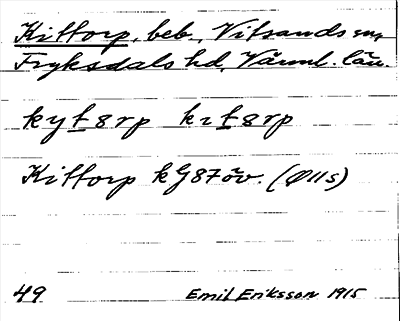 Kittorp, beb., Vitsands sn,
Fryksdals hd, Värml. län.
kyt8rp kit8rp
Kittorp kG87öv. (Ø11s)
49 Emil Eriksson 1915